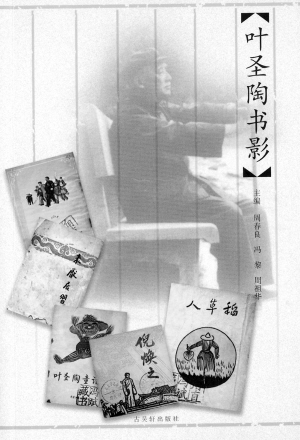 【叶圣陶书影】
主编 周春良 冯黎 周祖华
未厌居习
叶圣陶童话
倪焕之
人草稻
古吴轩出版社